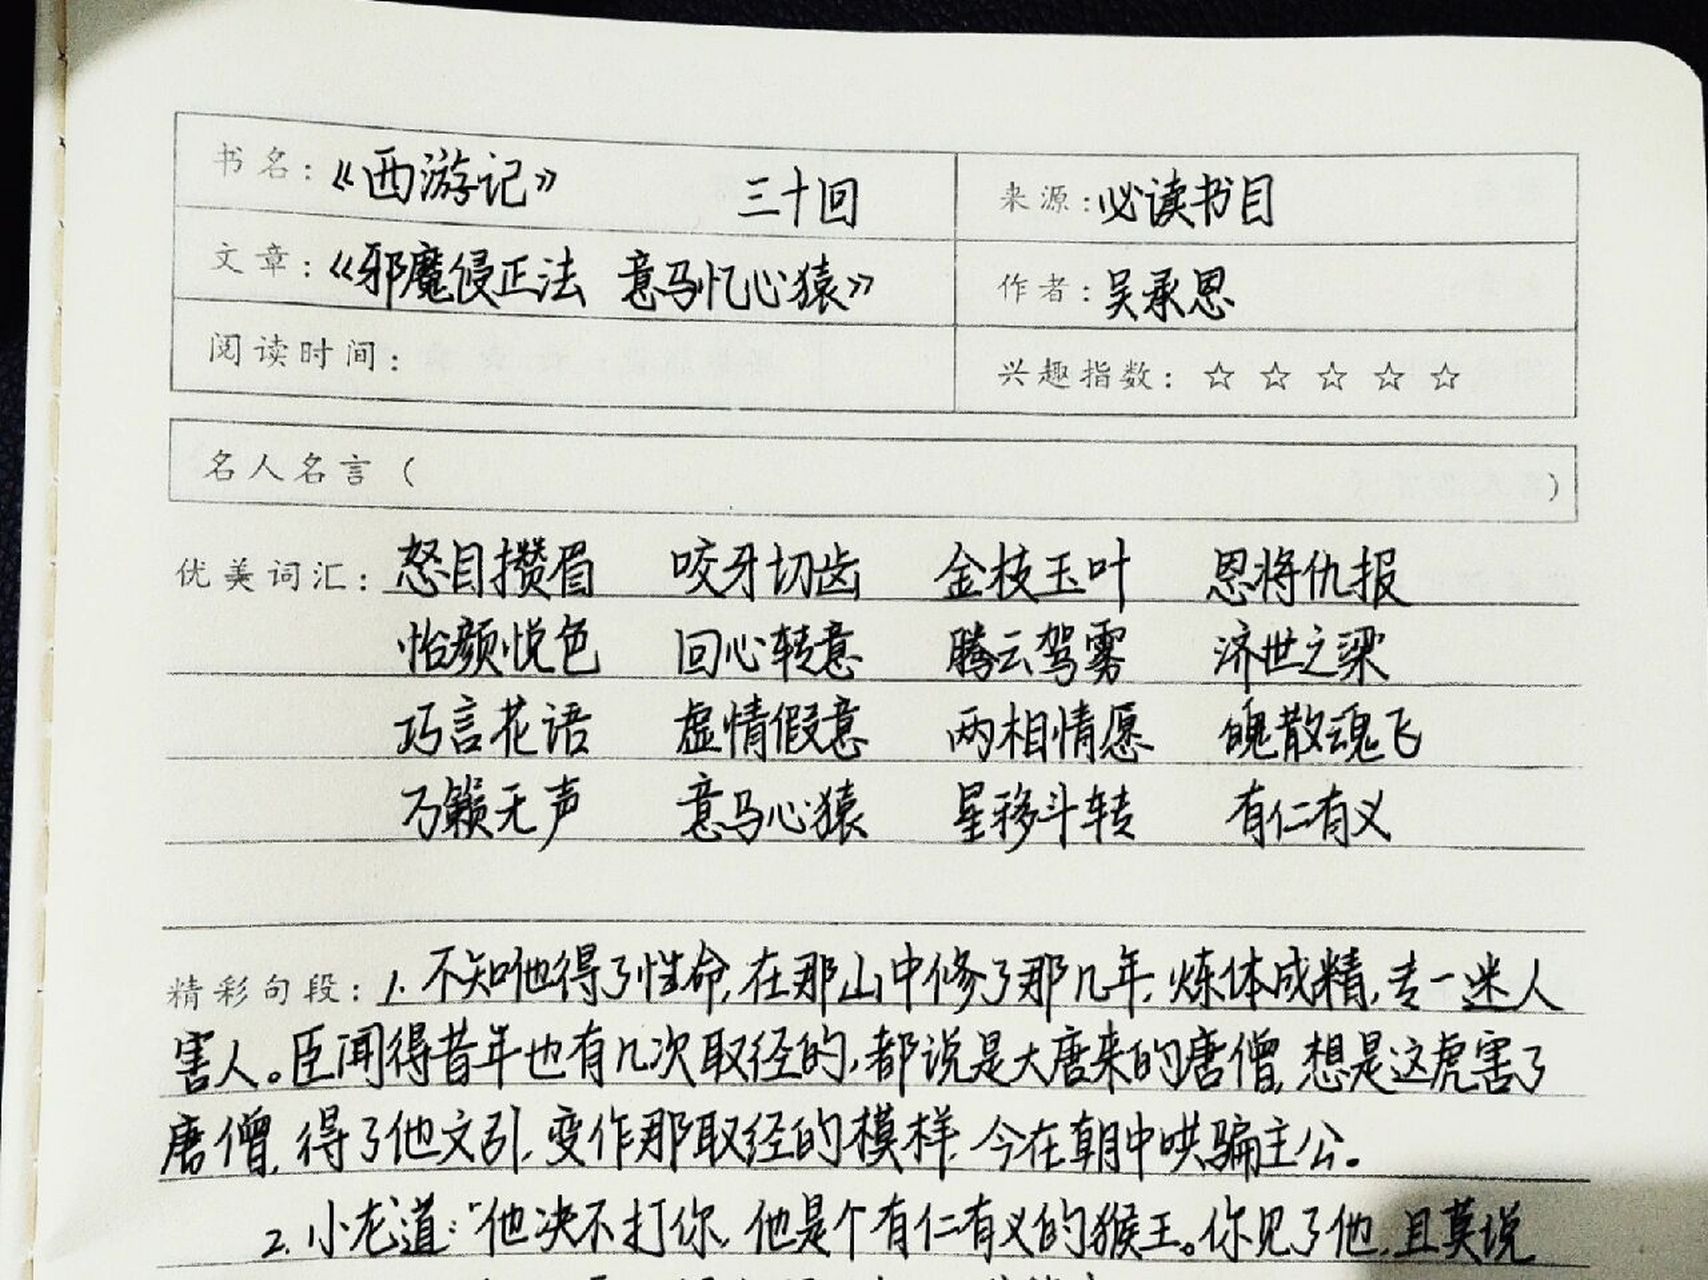 书名：《西游记》 三十回 来源：必读书目
文章：《邪魔侵正法 意马忆心猿》 作者：吴承恩
阅读时间： 兴趣指数：☆ ☆ ☆ ☆ ☆
名人名言（ ）
优美词汇：怒目攒眉 咬牙切齿 金枝玉叶 恩将仇报
怡颜悦色 回心转意 腾云驾雾 济世之梁
巧言花语 虚情假意 两相情愿 魄散魂飞
万籁无声 意马心猿 星移斗转 有仁有义
精彩句段：1. 不知他得了性命,在那山中修了那几年,炼体成精,专一迷人
害人。臣闻得昔年也有几次取经的,都说是大唐来的唐僧,想是这虎害了
唐僧,得了他文引,变作那取经的模样,今在朝中哄骗主公。
2. 小龙道:“他决不打你,他是个有仁有义的猴王。你见了他,且莫说